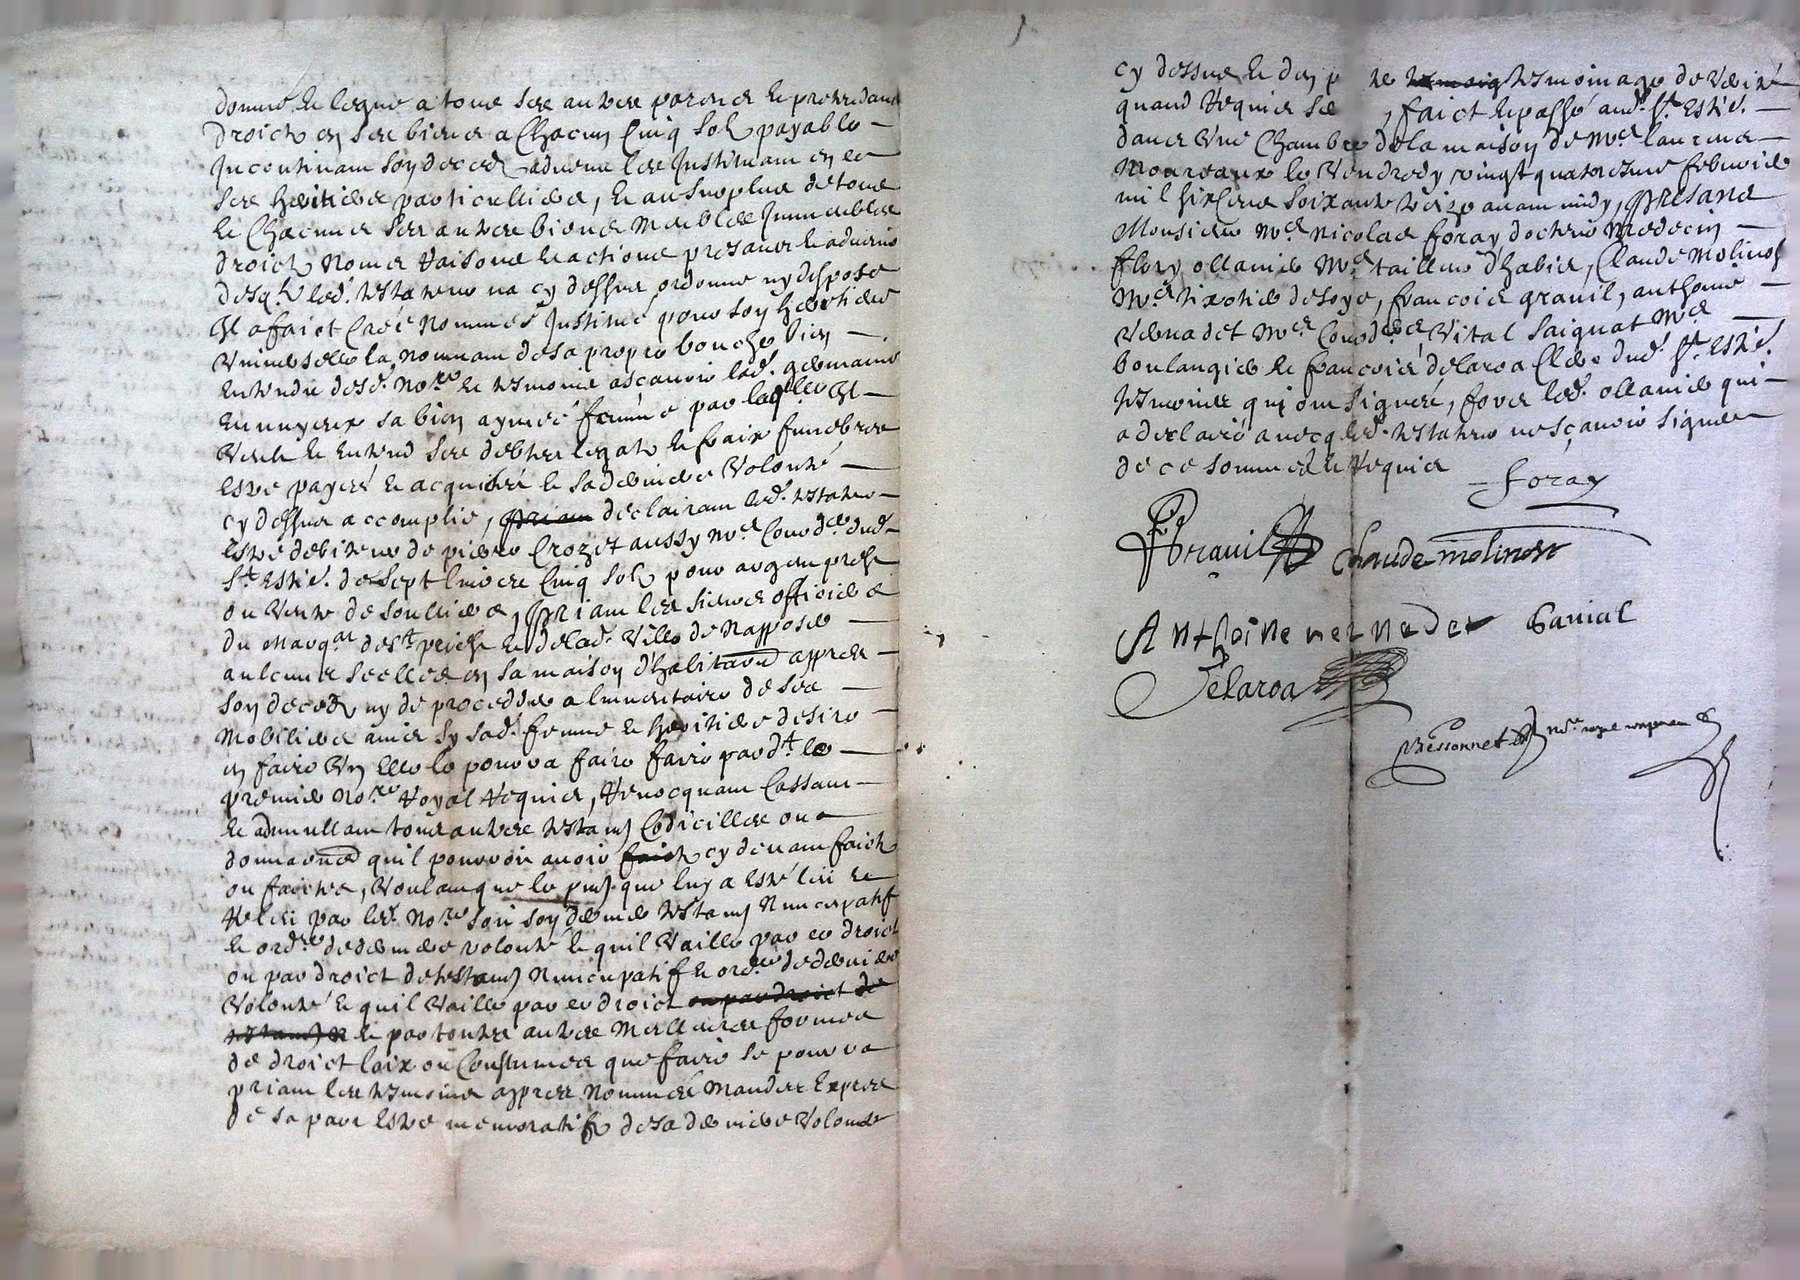 donne et legue a tous ses autres parens et pretendans
droict en ses biens a chacun cinq solz payable
Incontinant son deces advenu les Instituant en ce
ses heritiers particulliers, et au surplus de tous
et chacuns ses autres biens meubles Immeubles
droictz noms raisons et actions presans et advenir
desqlz led. testateur na cy dessus ordonne ny dispose
Il a faict cree nomme Institue pour son heritiere
universelle la nommant de sa propre bouche bien
entendu desd. nore et tesmoins ascavoir lad. germaine
sa bien aymee femme par laqlle Il
veut et entend ses debtes legatz et fraix funebres
estre payes et acquites et sa derniere volonte
cy dessus accomplie, priant declairant led. testateur
estre debiteur de pierre Crozet aussy mre Cordr dud.
St Este. de sept livres cinq solz pour argent preste
ou vente de soulliers, priant les sieurs officiers
du marqat de St priest et de lad. ville de napposer
aulcuns scelles en sa maison dhabitaon appres
son deces ny de proceder a linventaire de ses
mobiliers ains sy sad. femme et heritiere desire
en faire un elle le pourra faire faire par dt le
premier nore Royal requis, Revocquant cassant
et adnullant tous autres testamt codicilles ou
donnaons quil pourroit avoir faict cy devant faictz
ou faictes, voulant que le pnt que luy a este leu et
releu par led. nore soit son dernier testamt nuncupatif
et ordre de derniere volonte et quil vaille par ce droict
ou par droict de testamt nuncupatif et ordre de derniere
volonte et quil vaille par ce droict ou par droict de
testamt et par toutes autres meilleures formes
de droict loix ou coustumes que faire se pourra
priant les tesmoins appres nommes mandes expres
de sa part estre memoratifz de sa derniere volonte
cy dessus et den tesmoinage de verite
quand requis , faict et passe aud. St Este.
dans une chambre de la maison de mre laurans
moureaux le vendredy vingt quatriesme febvrier
mil six cens soixante treize avant midy, presans
Monsieur mre nicolas foray docteur medecin
flory ollanier mre tailleur dhabis, Claude molinost
mre de soye, francois gravil, anthoine
vernadet mre Cordr, vital saignat mre
boulangier et francois delaroa clerc dud. St Este.
tesmoins qui ont signes, fors led. ollanier qui
a declaire avecq led. testateur ne scavoir signer
de ce sommes et requis
foray
Graviel Claude molinost
Anthoine vernadet
Delaroa
Bessonnet nore royal